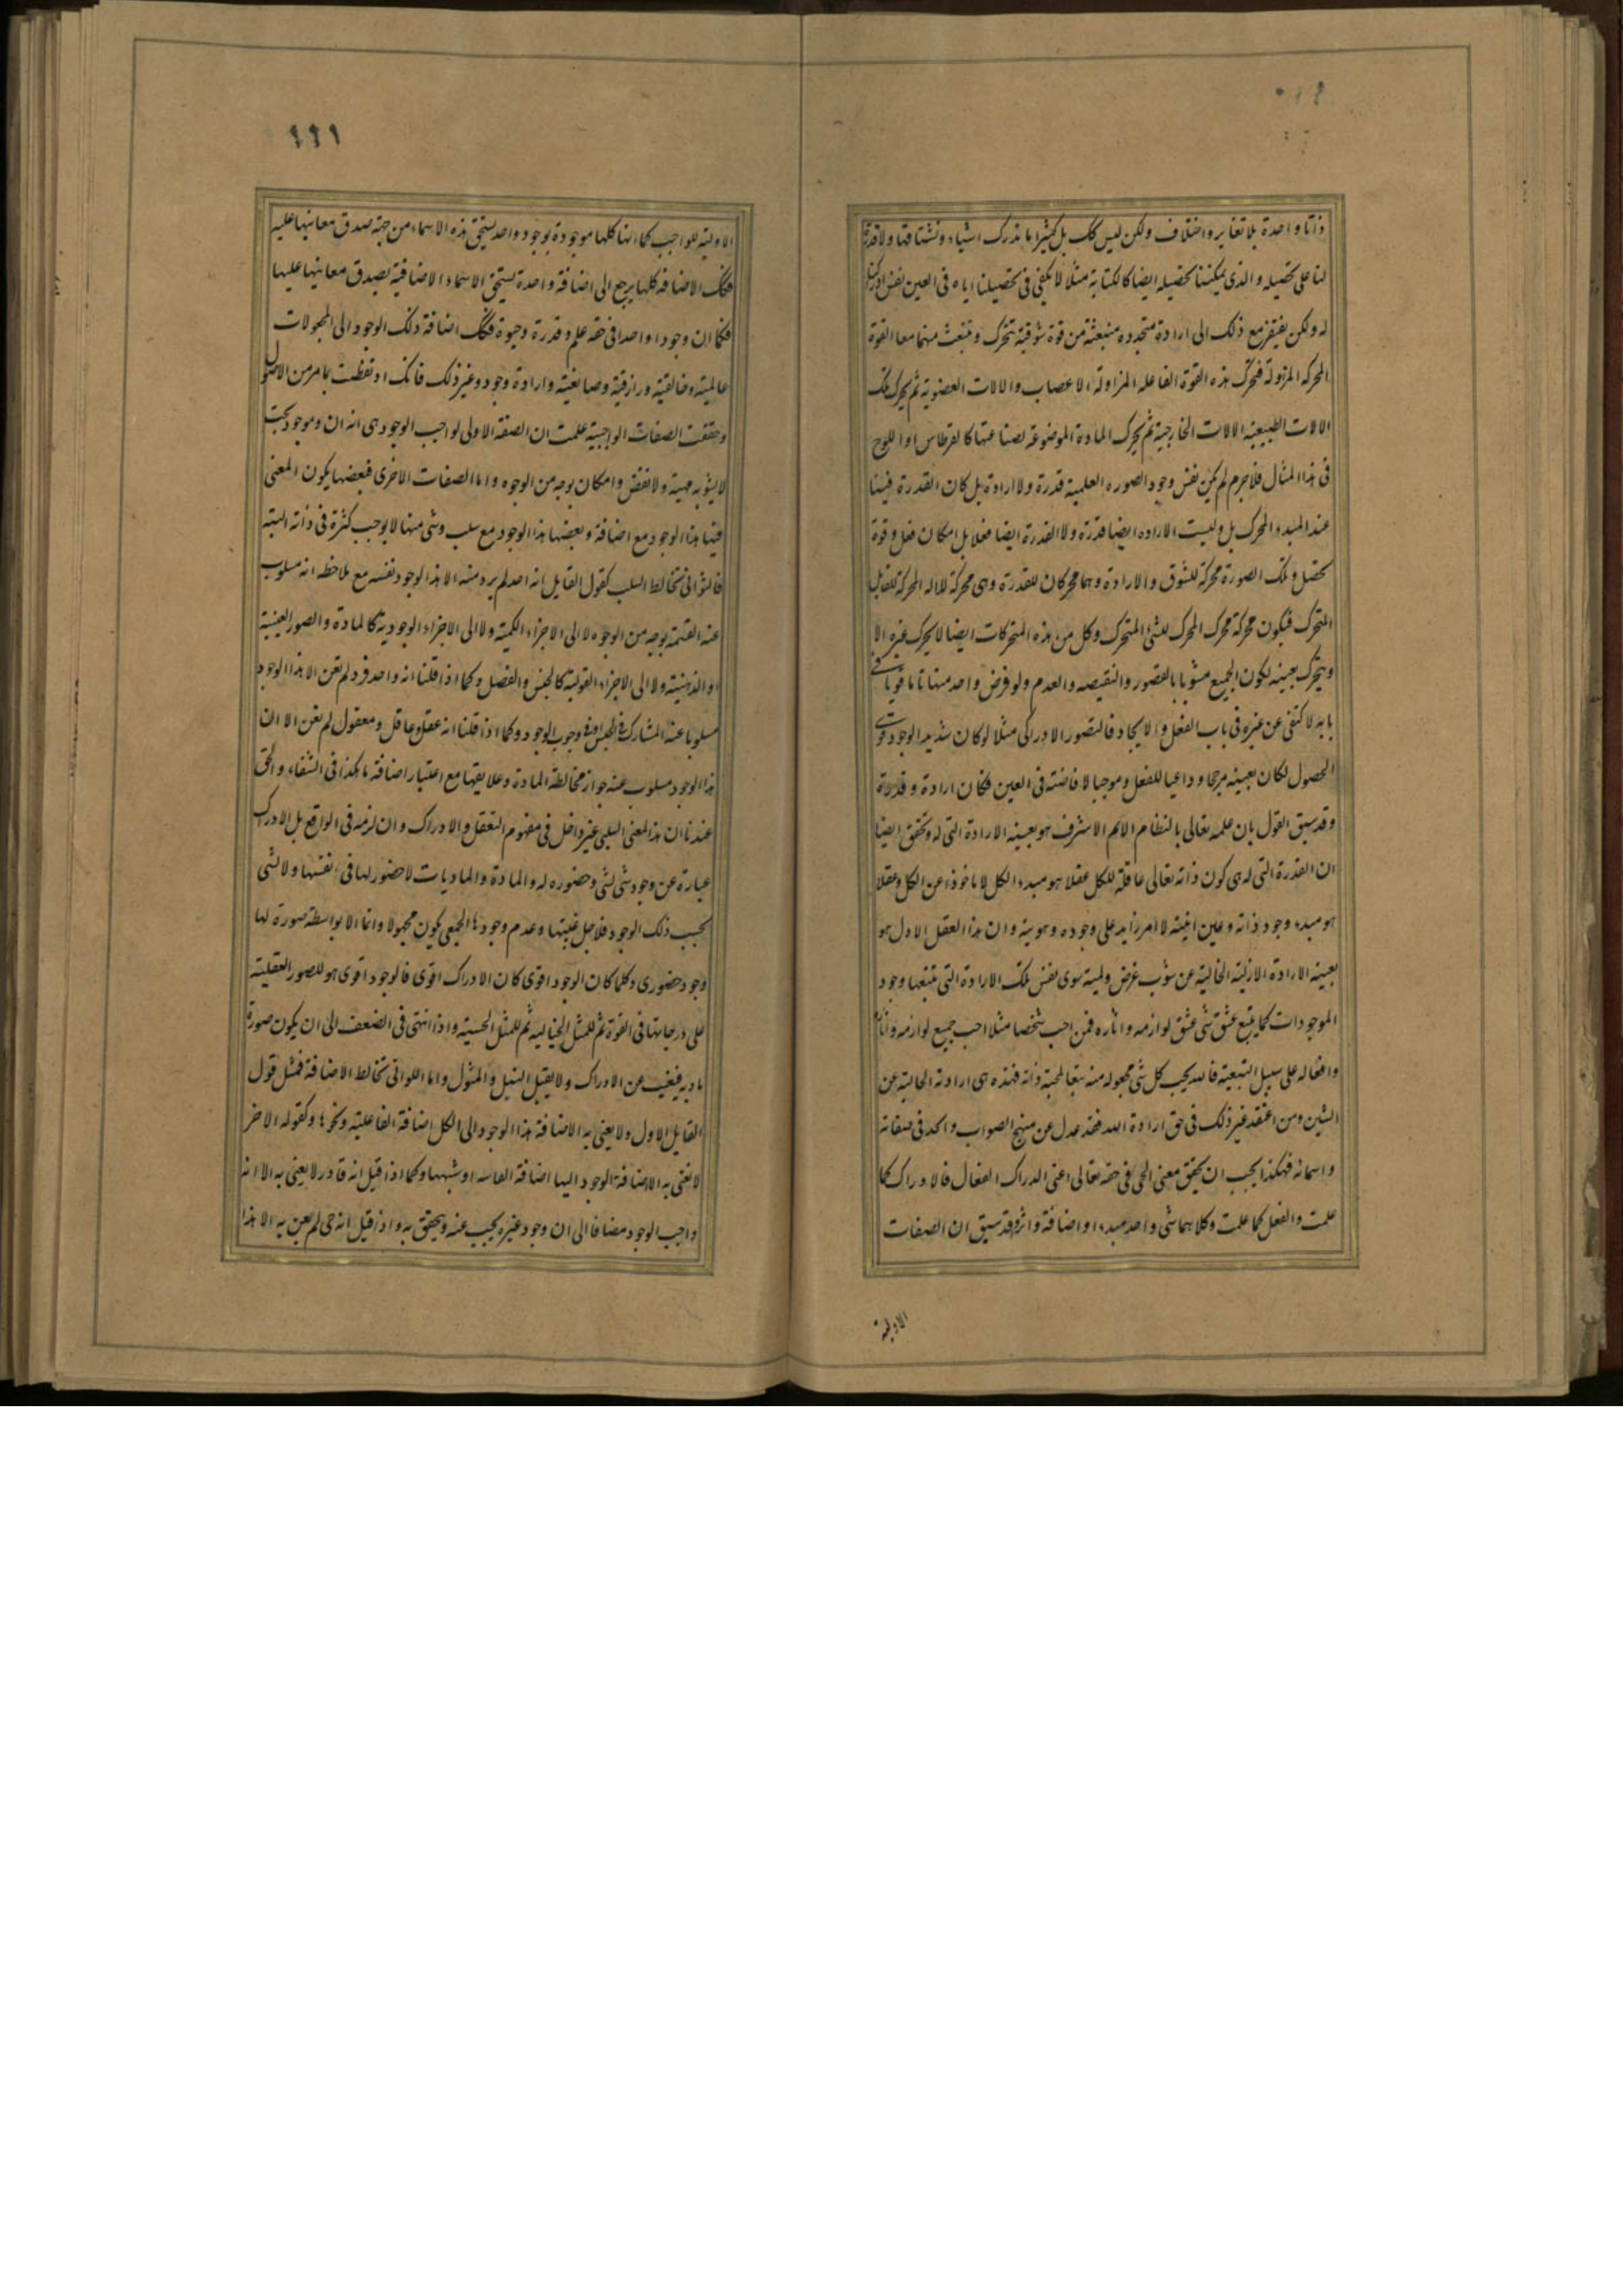 ذاتا واحدة بلا تغاير واختلاف ولكن ليس كك بل كثيرا ما ندرك اشياء ونشتاقها ولا قدرة
لنا على تحصيله والذى يمكننا تحصيله ايضا كالكتابة مثلا لا يكفى فى تحصيلنا اياه فى العين نفس ادراكنا
له ولكن يفتقر مع ذلك الى ارادة متجدده منبعثة من قوة شوقية تتحرك وتنبعث منهما معا القوة
المحركه المزاولة فتحرك هذه القوة الفاعله المزاولة الاعصاب والالات العضوية ثم يحرك تلك
الالات الطبيعية الالات الخارجية ثم يحرك المادة الموضوعة لصناعتها كالقرطاس او اللوح
فى هذا المثال فلا جرم لم يكن نفس وجود الصوره العلمية قدرة ولا ارادة بل كان القدرة فينا
عند المبدء المحرك بل وليست الاراده ايضا قدرة ولا القدرة ايضا فعلا بل امكان فعل وقوة
تحصل وتلك الصورة محركة للشوق والارادة وهما محركان للقدرة وهى محركة للاله المحركة للقابل
المتحرك فيكون محركة محرك المحرك للشئ المتحرك وكل من هذه المتحركات ايضا لا يحرك غيره الا
ويتحرك بعينه لكون الجميع مشوبا بالقصور والنقيصه والعدم ولو فرض واحد منها تاما قويا فى
بابه لاكتفى عن غيره فى باب الفعل والايجاد فالتصور الادراكى مثلا لو كان شديد الوجود قوى
الحصول لكان بعينه مرجحا وداعيا للفعل وموجبا لافاضته فى العين فكان ارادة وقدرة
وقد سبق القول بان علمه تعالى بالنظام الاتم الاشرف هو بعينه الارادة التى له وتحقق ايضا
ان القدرة التى له هى كون ذاته تعالى عاقلة للكل عقلا هو مبدء الكل لا ماخوذا عن الكل وعقلا
هو مبدء وجود ذاته وعين انيته لا امر زايد على وجوده وهويته وان هذا العقل الاول هو
بعينه الارادة الازلية الخالية عن شوب غرض ولمية سوى نفس تلك الارادة التى تتبعها وجود
الموجودات كما يتبع عشق شئ عشق لوازمه واثاره فمن احب شخصا مثلا احب جميع لوازمه واثاره
وافعاله على سبيل التبعية فالله يحب كل شئ مجعوله منه تبعا لمحبة ذاته فهذه هى ارادته الخالية عن
الشين ومن اعتقد غير ذلك فى حق ارادة الله فقد عدل عن منهج الصواب والحد فى صفاته
واسمائه فهكذا يجب ان يحقق معنى الحى فى حقه تعالى اعنى الدراك الفعال فالادراك كما
علمت والفعل كما علمت وكلاهما شئ واحد مبدء او اضافة واثر وقد سبق ان الصفات
الاولية
١١٩
الاولية للواجب كما انها كلها موجودة بوجود واحد يستحق هذه الاسماء من جهة صدق معانيها عليه
فكك الاضافة كلها يرجع الى اضافة واحدة يستحق الاسماء الاضافية بصدق معانيها عليها
فكما ان وجودا واحدا فى حقه علم وقدرة وحيوة فكك اضافة ذلك الوجود الى المجعولات
عالمية وخالقية ورازقية وصانعية وارادة وجود وغير ذلك فانك اذ تفطنت بما مر من الاصول
وحققت الصفات الواجبية علمت ان الصفة الاولى لواجب الوجود هى انه ان وموجود بحت
لا يشوبه مهية ولا نقص وامكان بوجه من الوجوه واما الصفات الاخرى فبعضها يكون المعنى
فيها هذا الوجود مع اضافة وبعضها هذا الوجود مع سلب وشئ منها لا يوجب كثرة فى ذاته البتة
فاللواتى تخالط السلب كقول القايل انه احد لم يرد منه الا هذا الوجود نفسه مع ملاحظة انه مسلوب
عنه القسمة بوجه من الوجوه لا الى الاجزاء الكمية ولا الى الاجزاء الوجودية كالمادة والصور العينية
او الذهنية ولا الى الاجزاء القولية كالجنس والفصل وكما اذا قلنا انه واحد فرد لم نعن الا هذا الوجود
مسلوبا عنه المشارك فى الجنس او فى وجوب الوجود وكما اذا قلنا انه عقل وعاقل ومعقول لم نعن الا ان
هذا الوجود مسلوب عنه جواز مخالطة المادة وعلايقها مع اعتبار اضافة ما هكذا فى الشفاء والحق
عندنا ان هذا المعنى السلبى غير داخل فى مفهوم التعقل والادراك وان لزمه فى الواقع بل الادراك
عبارة عن وجود شئ لشئ وحضوره له والمادة والماديات لا حضور لها فى نفسها ولا لشئ
بحسب ذلك الوجود فلاجل غيبتها وعدم وجودها الجمعى يكون مجهولا وانما الا بواسطة صورة لها
وجود حضورى وكلما كان الوجود اقوى كان الادراك اقوى فالوجود اقوى هو للصور العقلية
على درجاتها فى القوة ثم للمثل الخياليه ثم للمثل الحسية واذا انتهى فى الضعف الى ان يكون صورة
مادية فيغيب عن الادراك ولا يقبل النيل والمثول واما اللواتى تخالط الاضافة فمثل قول
القايل الاول ولا يعنى به الا اضافة هذا الوجود الى الكل اضافة الفاعلية ونحوها وكقوله الاخر
لا نعنى به الا اضافة الوجود اليها اضافة الغاية او شبهها وكما اذا قيل انه قادر لا يعنى به الا انه
واجب الوجود مضافا الى ان وجود غيره يجب عنه ويتحقق به واذا قيل انه حى لم يعن به الا هذا